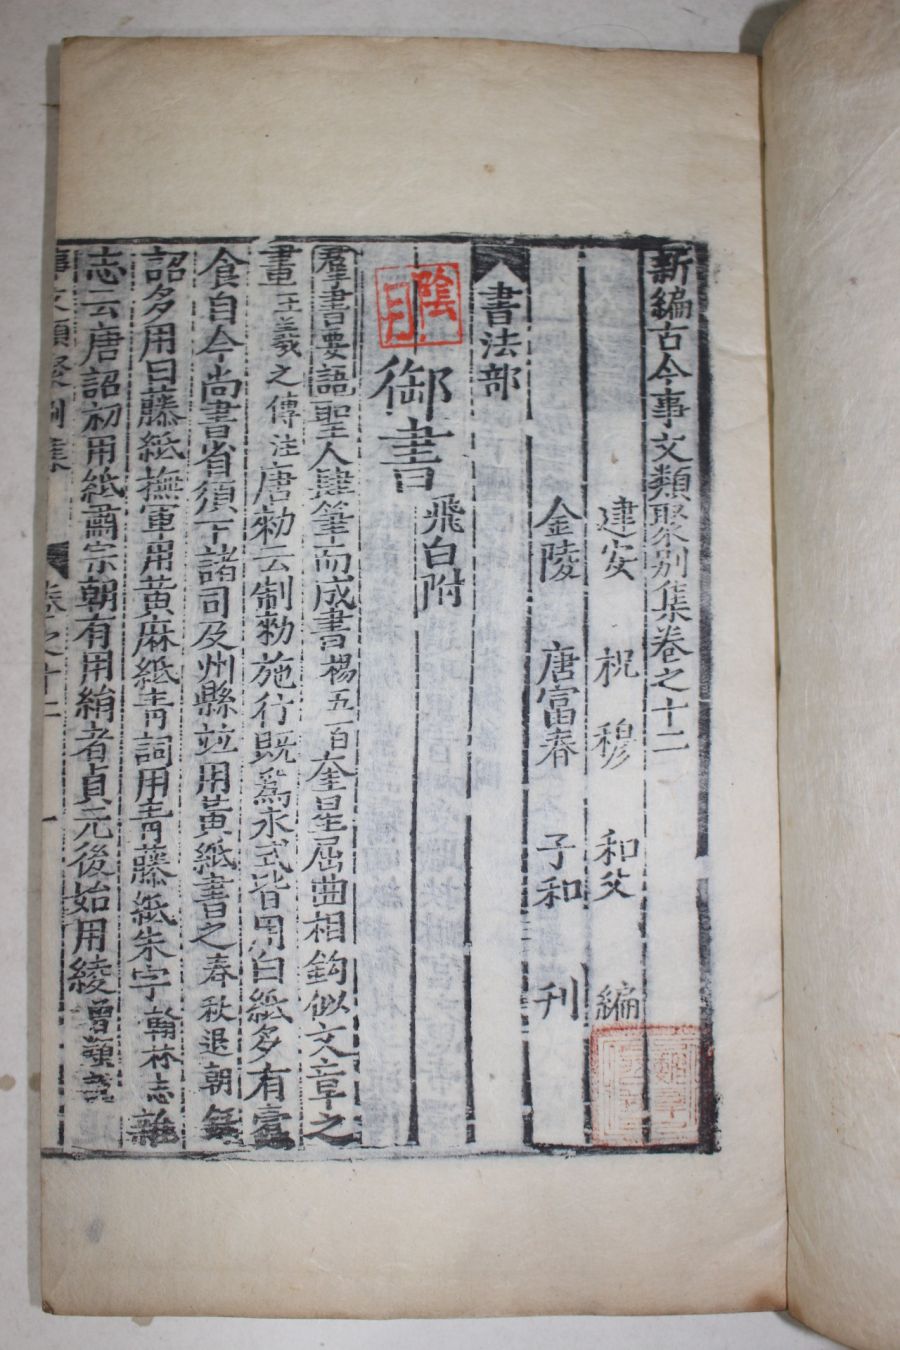 新編古今事文類聚別集卷之十二
建安 祝穆 和父 編
金陵 唐富春 子和 刊
書法部
御書 飛白附
羣書要語聖人肆筆而成書楊五百奎星屈曲相鈎似文章之
畫王羲之傳注唐勑云制勑施行既爲永式皆用白紙多有蠹
食自今尚書省須下諸司及州縣竝用黄紙書之春秋退朝錄
詔多用日藤紙撫軍用黄麻紙青詞用青藤紙朱字翰林志
志云唐詔初用紙肅宗朝有用絹者貞元後始用綾
事文類聚別集 卷之十二 一
陰月